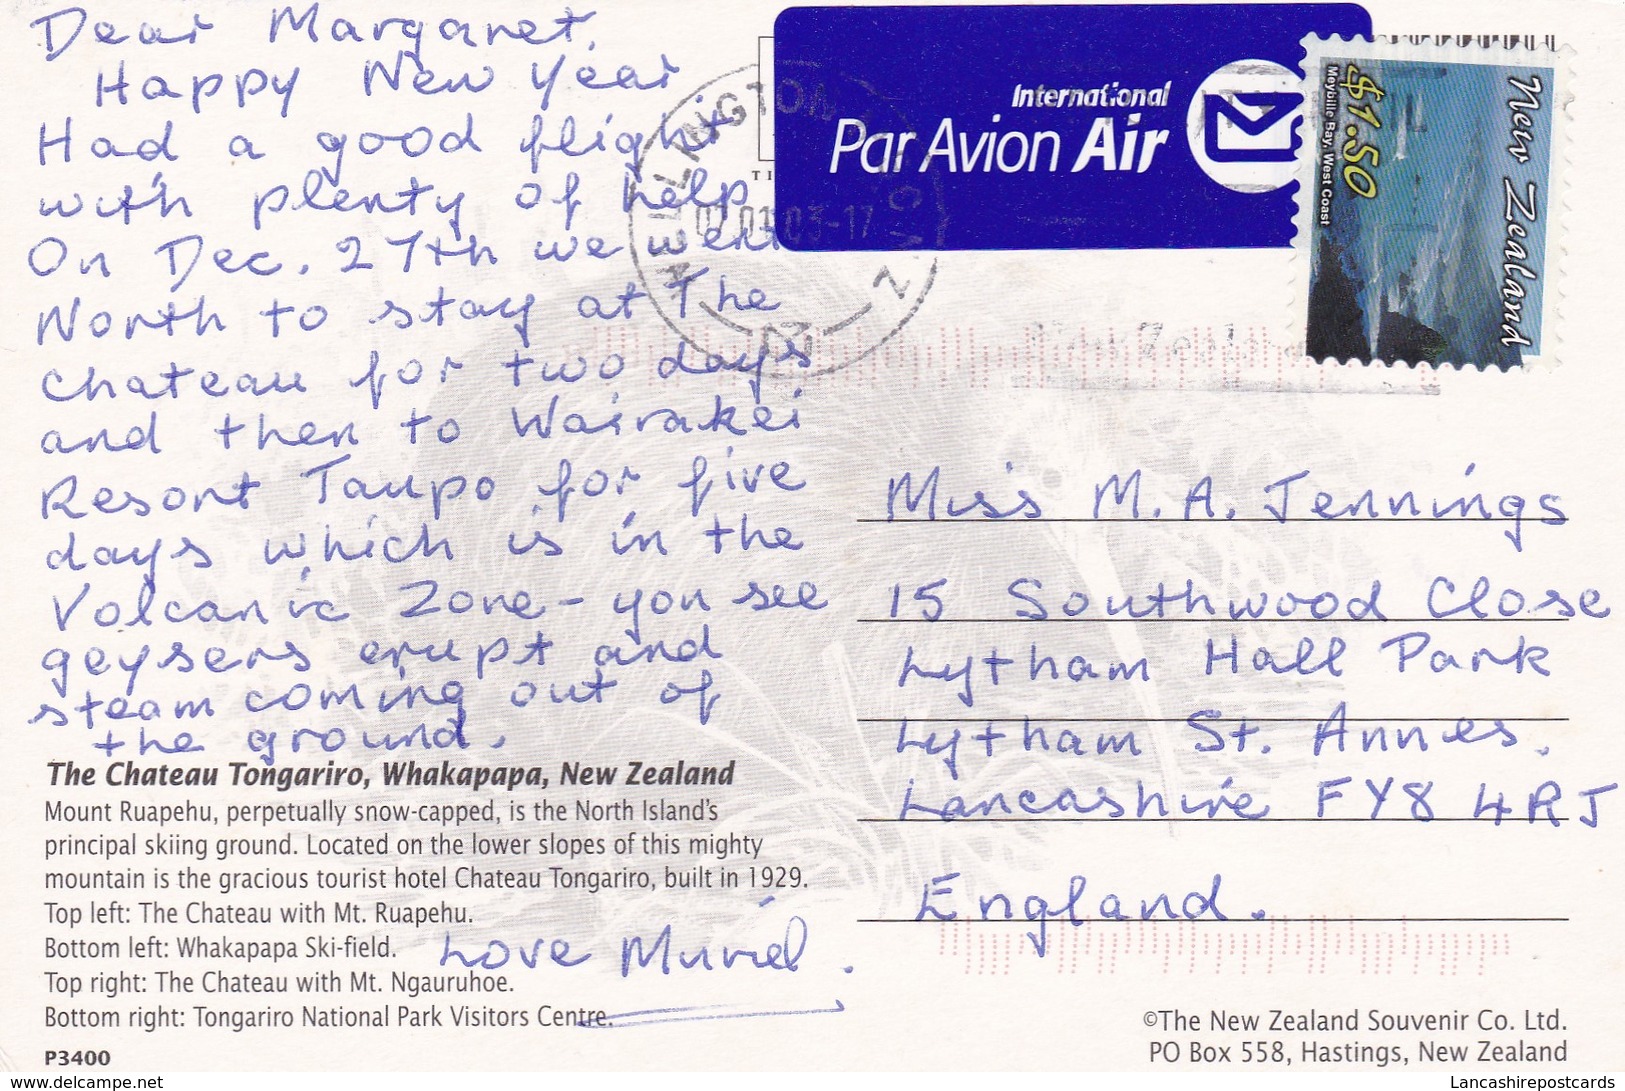 Dear Margaret,
Happy New Year
Had a good flight
with plenty of help
On Dec. 27th we went
North to stay at The
Chateau for two days
and then to Wairakei
Resort Taupo for five
days which is in the
Volcanic Zone - you see
geysers erupt and
steam coming out of
the ground.
The Chateau Tongariro, Whakapapa, New Zealand
Mount Ruapehu, perpetually snow-capped, is the North Island's
principal skiing ground. Located on the lower slopes of this mighty
mountain is the gracious tourist hotel Chateau Tongariro, built in 1929.
Top left: The Chateau with Mt. Ruapehu.
Bottom left: Whakapapa Ski-field.
Love Muriel.
Top right: The Chateau with Mt. Ngauruhoe.
Bottom right: Tongariro National Park Visitors Centre.
P3400
WELLINGTON
N.Z.
International
Par Avion Air
New Zealand
$1.50
Meybille Bay, West Coast
Miss M. A. Jennings
15 Southwood Close
Lytham Hall Park
Lytham St. Annes.
Lancashire FY8 4RJ
England.
©The New Zealand Souvenir Co. Ltd.
PO Box 558, Hastings, New Zealand
www.delcampe.net
Lancashirepostcards